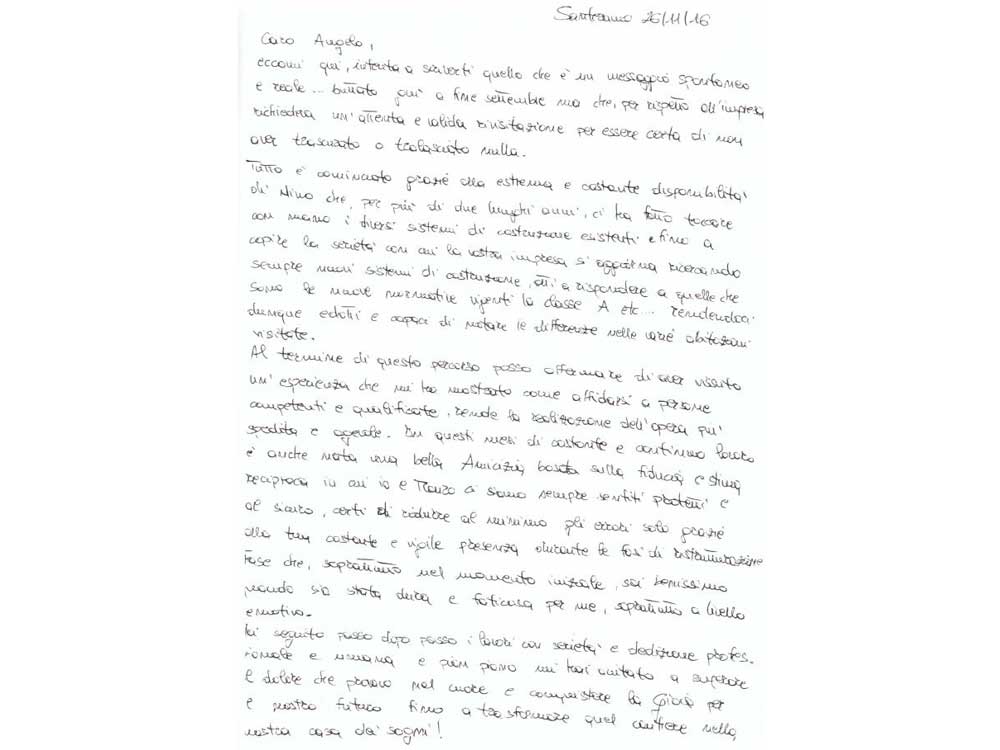 Santeramo 26/11/16
Caro Angelo,
eccomi qui, intenta a scriverti quello che è un messaggio spontaneo
e reale... buttato giù a fine settembre ma che, per rispetto all'impresa
richiedeva un'attenta e valida rivisitazione per essere certa di non
aver trascurato o tralasciato nulla.
Tutto è cominciato grazie alla estrema e costante disponibilità
di Nino che, per più di due lunghi anni, ci ha fatto toccare
con mano i diversi sistemi di costruzione esistenti e fino a
capire la serietà con cui la vostra impresa si aggiorna ricercando
sempre nuovi sistemi di costruzione, atti a rispondere a quelle che
sono le nuove normative vigenti la classe A etc.... rendendoci
dunque edotti e capaci di notare le differenze nelle varie abitazioni
visitate.
Al termine di questo percorso posso affermare di aver vissuto
un'esperienza che mi ha mostrato come affidarsi a persone
competenti e qualificate, rende la realizzazione dell'opera più
spedita e agevole. In questi mesi di costante e continuo lavoro
è anche nata una bella Amicizia basata sulla fiducia e stima
reciproca in cui io e Renzo ci siamo sempre sentiti protetti e
al sicuro, certi di ridurre al minimo gli errori solo grazie
alla tua costante e vigile presenza durante le fasi di ristrutturazione
fase che, soprattutto nel momento iniziale, sai benissimo
quando sia stata dura e faticosa per me, soprattutto a livello
emotivo.
Hai seguito passo dopo passo i lavori con serietà e dedizione profes-
sionale e umana e pian piano mi hai aiutato a superare
il dolore che provavo nel cuore e conquistare la gioia per
il nostro futuro fino a trasformare quel cantiere nella
nostra casa dei sogni!